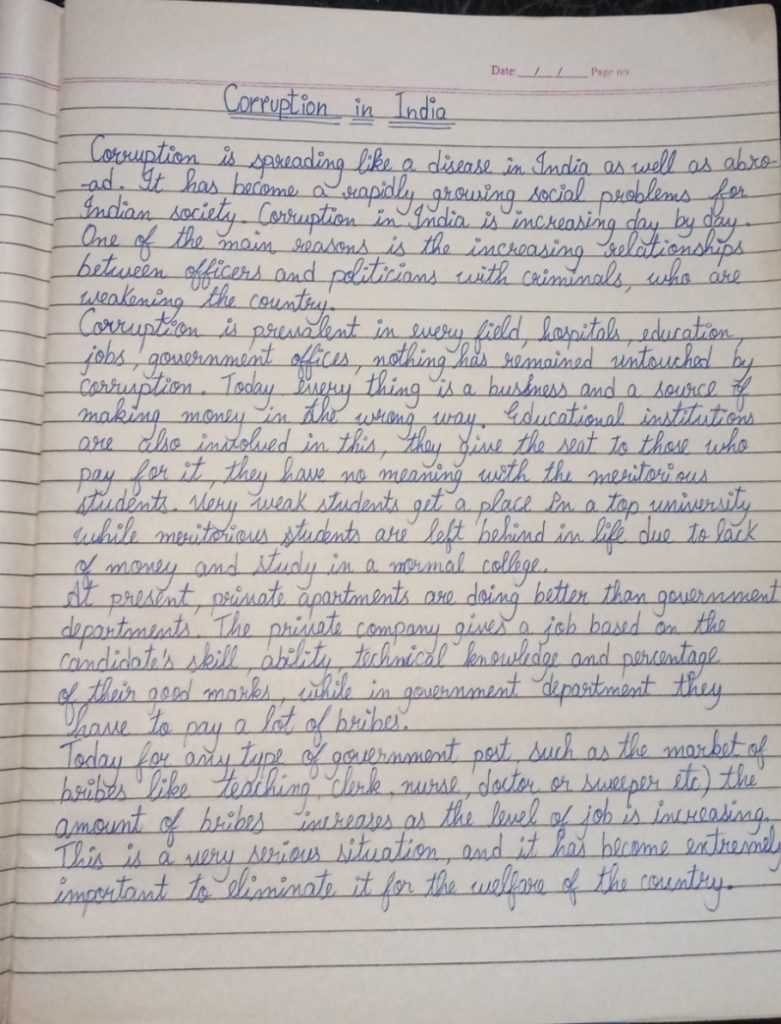 Date: / / Page no:
Corruption in India
Corruption is spreading like a disease in India as well as abro-
-ad. It has become a rapidly growing social problems for
Indian society. Corruption in India is increasing day by day.
One of the main reasons is the increasing relationships
between officers and politicians with criminals, who are
weakening the country.
Corruption is prevalent in every field, hospitals, education,
jobs, government offices, nothing has remained untouched by
corruption. Today every thing is a business and a source of
making money in the wrong way. Educational institutions
are also involved in this, they give the seat to those who
pay for it, they have no meaning with the meritorious
students. Very weak students get a place in a top university
while meritorious students are left behind in life due to lack
of money and study in a normal college.
At present, private apartments are doing better than government
departments. The private company gives a job based on the
candidate's skill, ability, technical knowledge and percentage
of their good marks, while in government department they
have to pay a lot of bribes.
Today for any type of government post, such as the market of
bribes like teaching, clerk, nurse, doctor or sweeper etc) the
amount of bribes increases as the level of job is increasing.
This is a very serious situation, and it has become extremely
important to eliminate it for the welfare of the country.